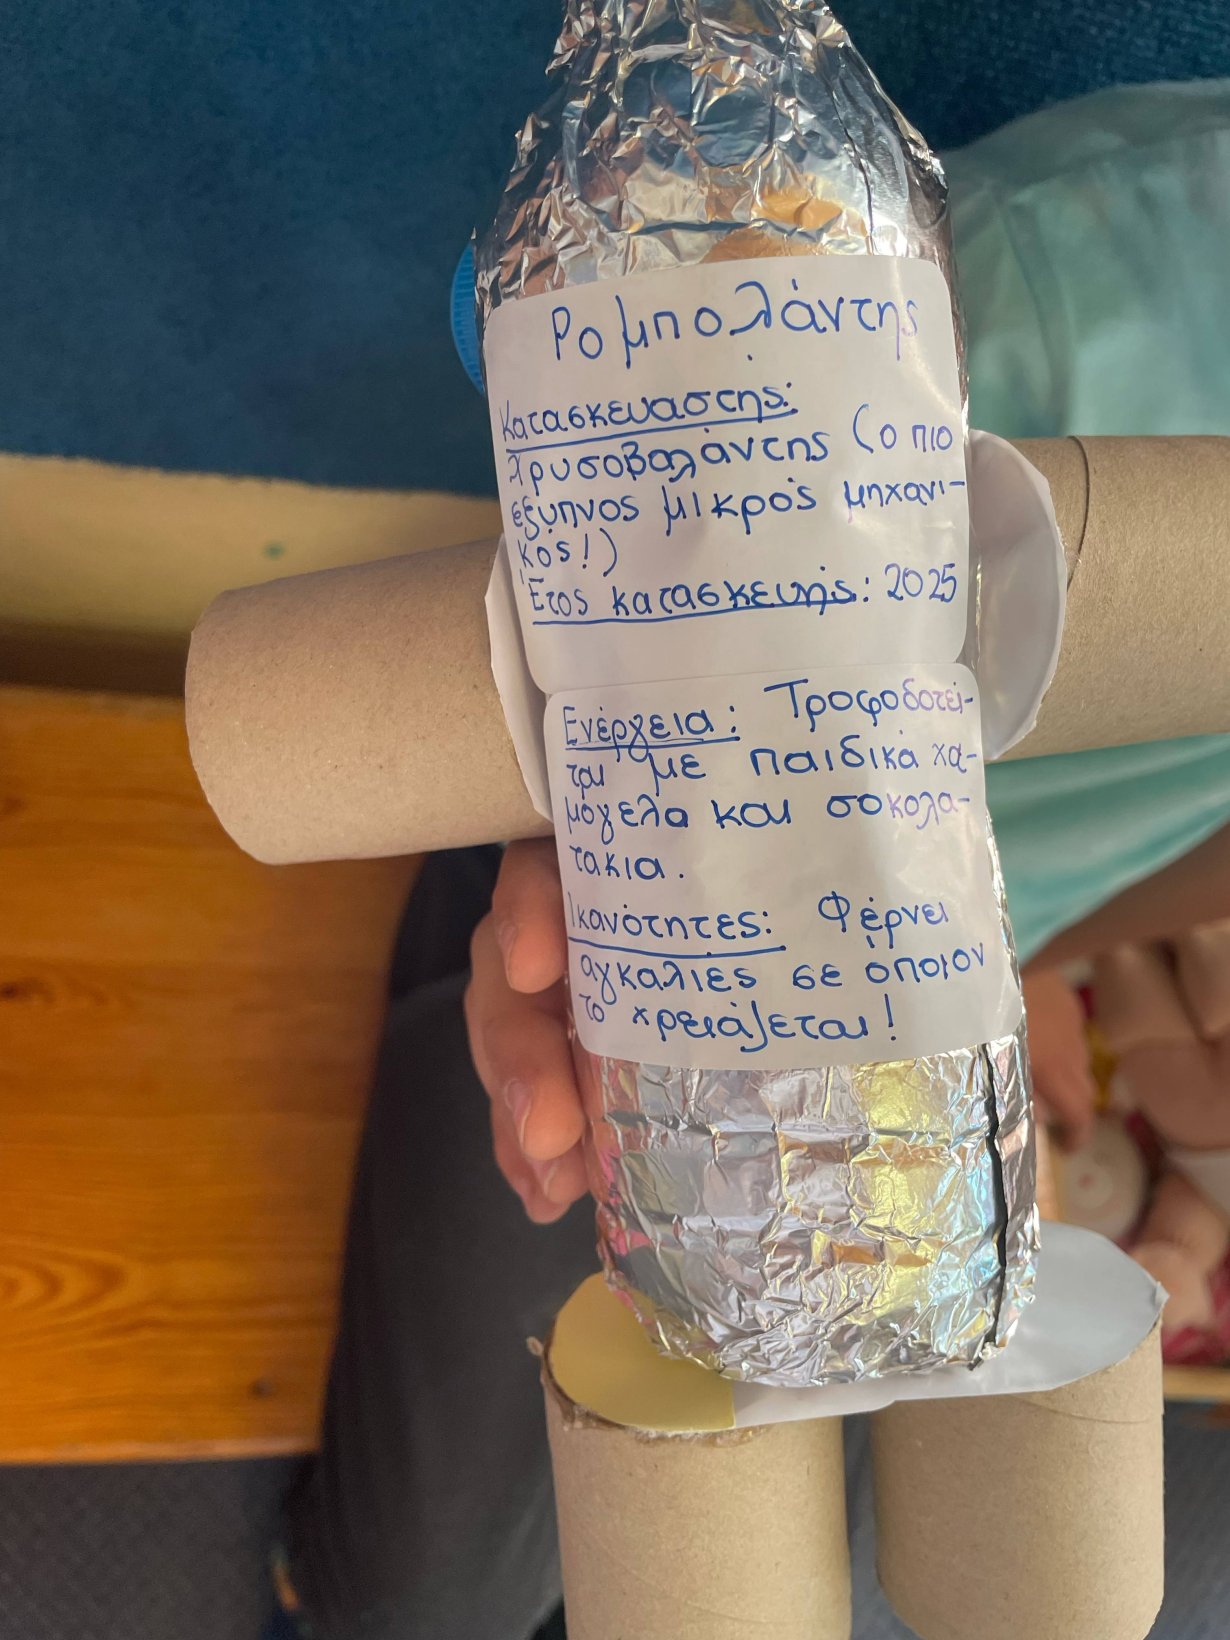 Ρομπολάντης
Κατασκευαστής:
Χρυσοβαλάντης (ο πιο
έξυπνος μικρός μηχανι-
κός!)
Έτος κατασκευής: 2025
Ενέργεια: Τροφοδοτεί-
ται με παιδικά χα-
μόγελα και σοκολα-
τάκια.
Ικανότητες: Φέρνει
αγκαλιές σε όποιον
το χρειάζεται!